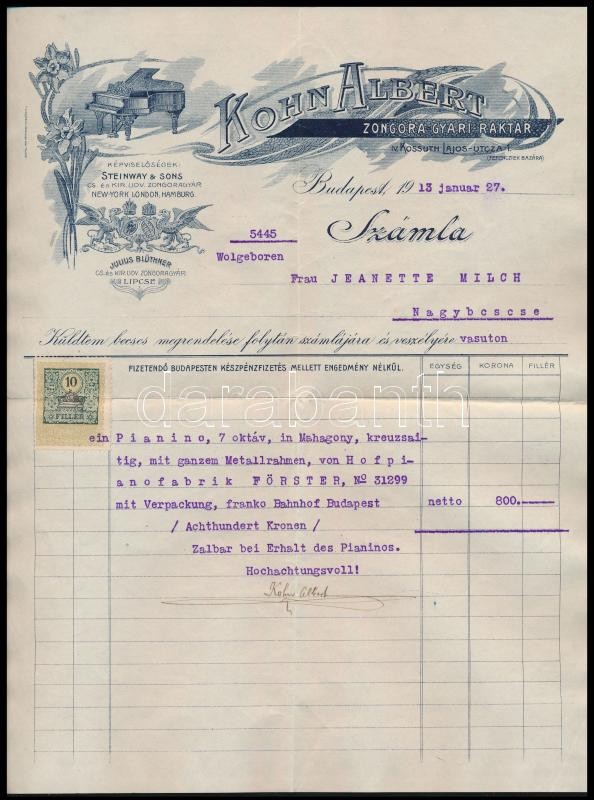 KOHN ALBERT
ZONGORA-GYÁRI-RAKTÁR.
IV. KOSSUTH LAJOS-UTCZA 1.
(FERENCZIEK BAZÁRA)
KÉPVISELŐSÉGEK:
STEINWAY & SONS
CS. és KIR. UDV. ZONGORAGYÁR
NEW-YORK, LONDON, HAMBURG.
JULIUS BLÜTHNER
CS. és KIR. UDV. ZONGORAGYÁR
LIPCSE
Budapest, 1913 januar 27.
5445
Számla
Wolgeboren
Frau JEANETTE MILCH
Nagybcscse
Küldtem becses megrendelése folytán számlájára és veszélyére vasuton
FIZETENDŐ BUDAPESTEN KÉSZPÉNZFIZETÉS MELLETT ENGEDMÉNY NÉLKÜL.
EGYSÉG KORONA FILLÉR
10
FILLÉR
ein Pianino, 7 oktáv, in Mahagony, kreuzsai-
tig, mit ganzem Metallrahmen, von Hofpi-
anofabrik FÖRSTER, No 31299
mit Verpackung, franko Bahnhof Budapest netto 800.—
/ Achthundert Kronen /
Zalbar bei Erhalt des Pianinos.
Hochachtungsvoll!
Kohn Albert
darabanth